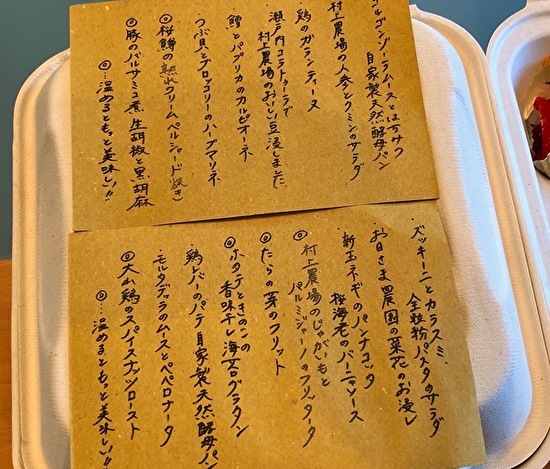 ゴルゴンゾーラムースとはっサク
自家製天然酵母パン
村上農場の人参とクミンのサラダ
・鶏のガランティーヌ
・瀬戸内コラトゥーラで
村上農場のおいしい豆浸しました。
鱈とパプリカのカルピオーネ
つぶ貝とブロッコリーのハーブマリネ
◎桜鱒の熟れクリームペルシャード焼き
◎豚のバルサミコ煮 生胡椒と黒胡麻
◎…温めるともっと美味しい!!
・ズッキーニとカラスミ、
全粒粉パスタのサラダ
お日さま農園の菜花のお浸し
・新玉ネギのパンナコッタ
桜海老のバーニャソース
◎村上農場のじゃがいもと
パルミジャーノのフリッタータ
◎たらの芽のフリット
◎ホタテときのこの
香味干し海苔グラタン
鶏レバーのパテ 自家製天然酵母パン
モルタデッラのムースとペペロナータ
◎大山鶏のスパイスナッツロースト
◎…温めるともっと美味しい!!